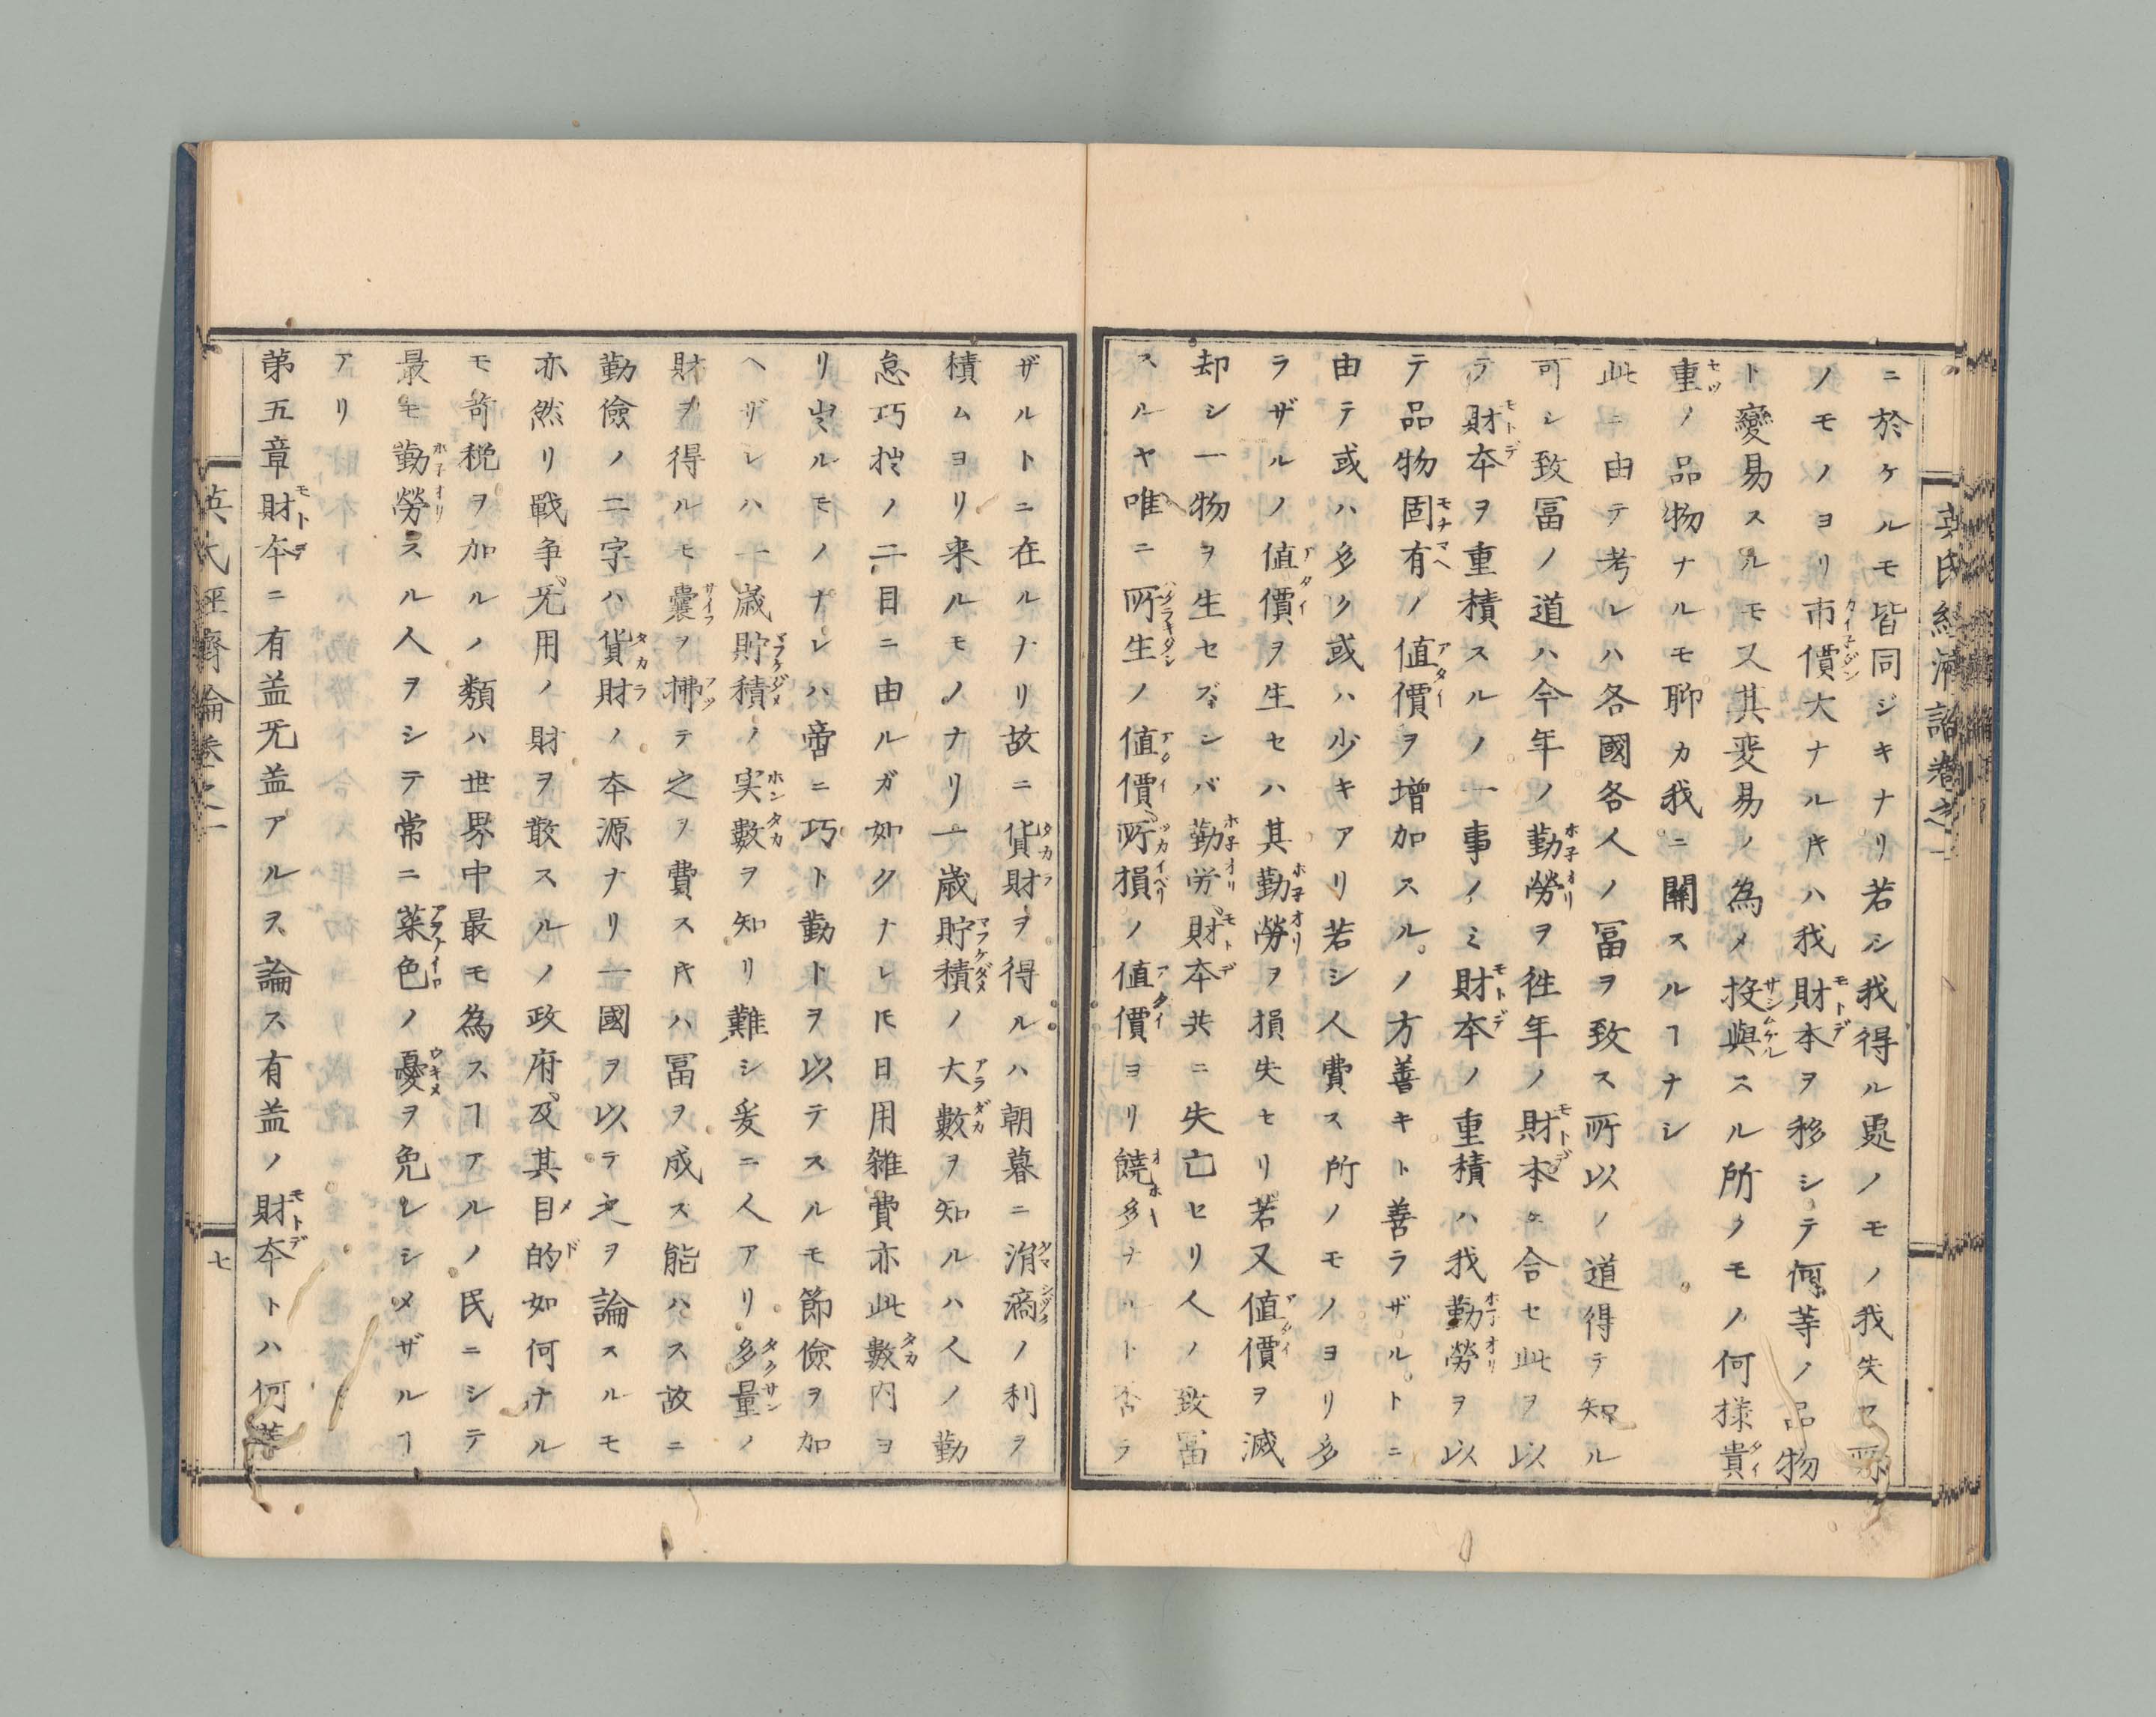 ニ於ケルモ皆同ジキナリ若シ我得ル處ノモノ我失セ
ノモノヨリ市價大ナル𪜈ハ我財本ヲ移シテ何等ノ品物
ト變易スルモ又其変易ノ為メ投與スル所ノモノ何様貴
重ノ品物ナルモ聊カ我ニ關スルヿナシ
此ニ由テ考レハ各國各人ノ冨ヲ致ス所以ノ道得テ知ル
可シ致冨ノ道ハ今年ノ勤勞ヲ徃年ノ財本ニ合セ此ヲ以
テ財本ヲ重積スルノ一事ノミ財本ノ重積ハ我勤勞ヲ以
テ品物固有ノ値價ヲ增加スルノ方善キト善ラザルトニ
由テ或ハ多ク或ハ少キアリ若シ人費ス所ノモノヨリ多
ラザルノ値價ヲ生セハ其勤勞ヲ損失セリ若又値價ヲ滅
却シ一物ヲ生セズンバ勤労財本共ニ失亡セリ人ノ致冨
スルヤ唯ニ所生ノ値價所損ノ値價ヨリ饒多ナルト否ラ
ザルトニ在ルナリ故ニ貨財ヲ得ルハ朝暮ニ涓滴ノ利ヲ
積ムヨリ来ルモノナリ一歳貯積ノ大數ヲ知ルハ人ノ勤
怠巧拙ノ二目ニ由ルガ如クナレ𪜈日用雑費亦此數内ヨ
リ出ルモノナレハ啻ニ巧ト勤トヲ以テスルモ節儉ヲ加
ヘザレハ一歳貯積ノ実數ヲ知リ難シ爰ニ人アリ多量ノ
財ヲ得ルモ嚢ヲ拂テ之ヲ費ス𪜈ハ冨ヲ成ス能ハス故ニ
勤儉ノ二字ハ貨財ノ本源ナリ一國ヲ以テ之ヲ論スルモ
亦然リ戰争旡用ノ財ヲ散スルノ政府及其目的如何ナル
モ苛税ヲ加ルノ類ハ世界中最モ為スヿアルノ民ニシテ
最モ勤勞スル人ヲシテ常ニ菜色ノ憂ヲ免レシメザルヿ
アリ
第五章財本ニ有益旡益アルヲ論ス有益ノ財本トハ何
英氏經濟論卷之一
七